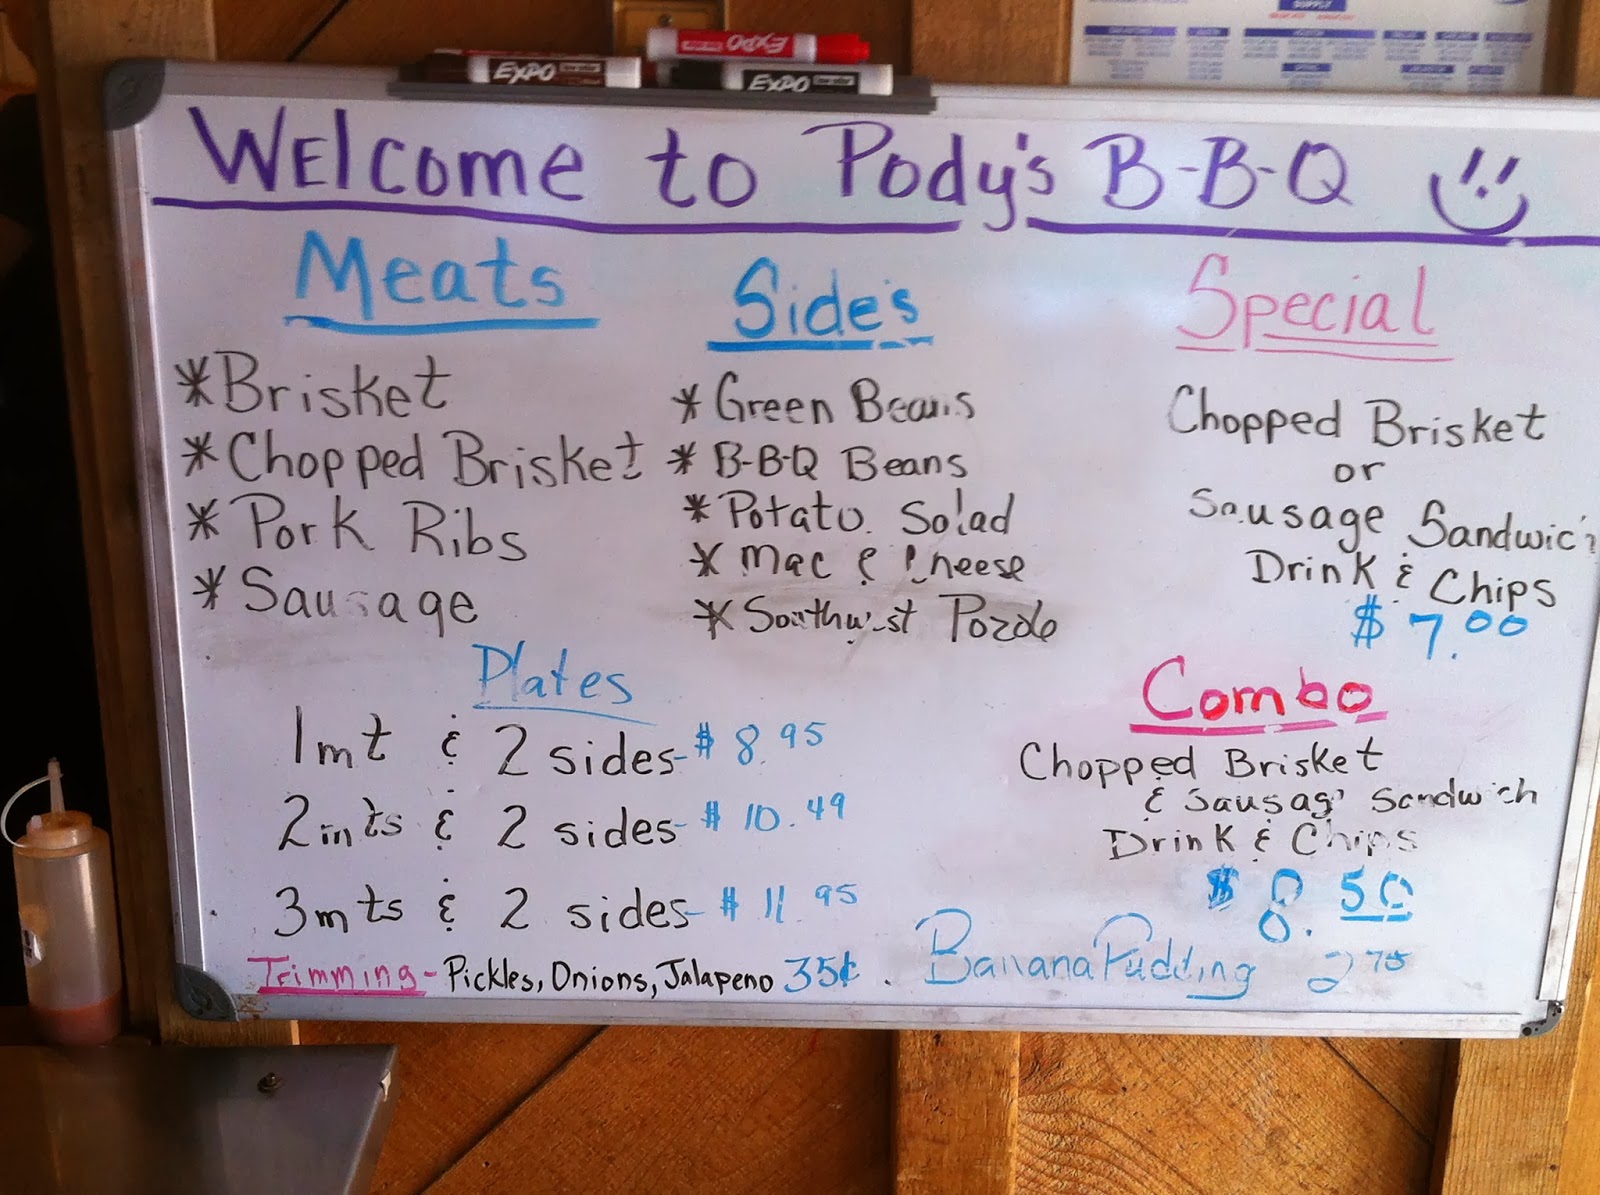 EXPO
EXPO
EXPO
SUPPLY
WElcome to Pody's B-B-Q
Meats
*Brisket
*Chopped Brisket
*Pork Ribs
*Sausage
Side's
*Green Beans
*B-B-Q Beans
*Potato Salad
*Mac & Cheese
*Southwest Pozole
Special
Chopped Brisket
or
Sausage Sandwich
Drink & Chips
$7.00
Plates
1mt & 2 sides-$8.95
2mts & 2 sides-$10.49
3mts & 2 sides-$11.95
Combo
Chopped Brisket
& Sausage Sandwich
Drink & Chips
$8.50
Trimming-Pickles, Onions, Jalapeno 35¢.
Banana Pudding 2.75